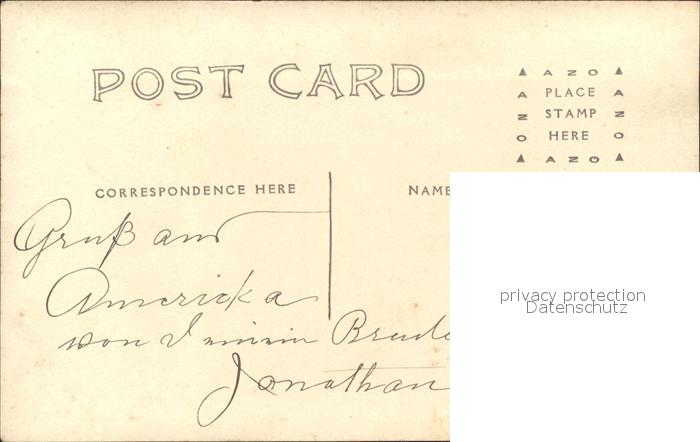 POST CARD
▲ AZO ▲
A PLACE A
N STAMP N
O HERE O
▲ AZO ▲
CORRESPONDENCE HERE
NAME
Gruß aus
Amerika
von
Jonathan
privacy protection
Datenschutz